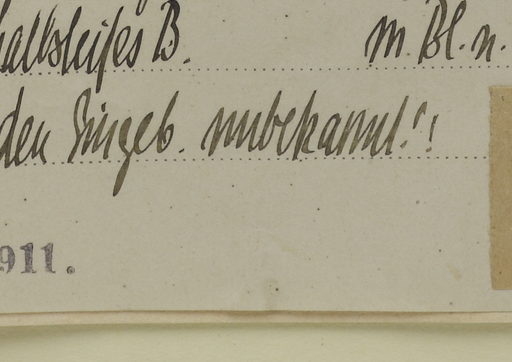 B. m. Bl. n.
den Eingeb. unbekannt!!
911.